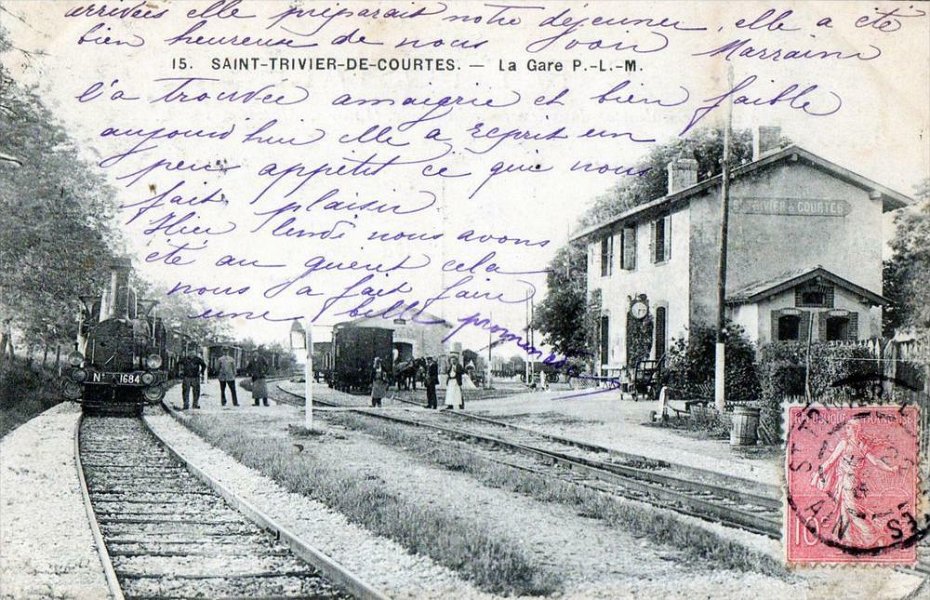 arrivées elle préparait notre déjeuner, elle a été
bien heureuse de nous voir Marraine
15. SAINT-TRIVIER-DE-COURTES. — La Gare P.-L.-M.
l'a trouvée amaigrie et bien faible
aujourd'hui elle a reprit un
peu appétit ce que nous
fait plaisir
Hier lundi nous avons
été au guent cela
nous a fait faire
une belle promenade
TRIVIER de COURTES
No 1684
REPUBLIQUE FRANÇAISE
10c
AIN